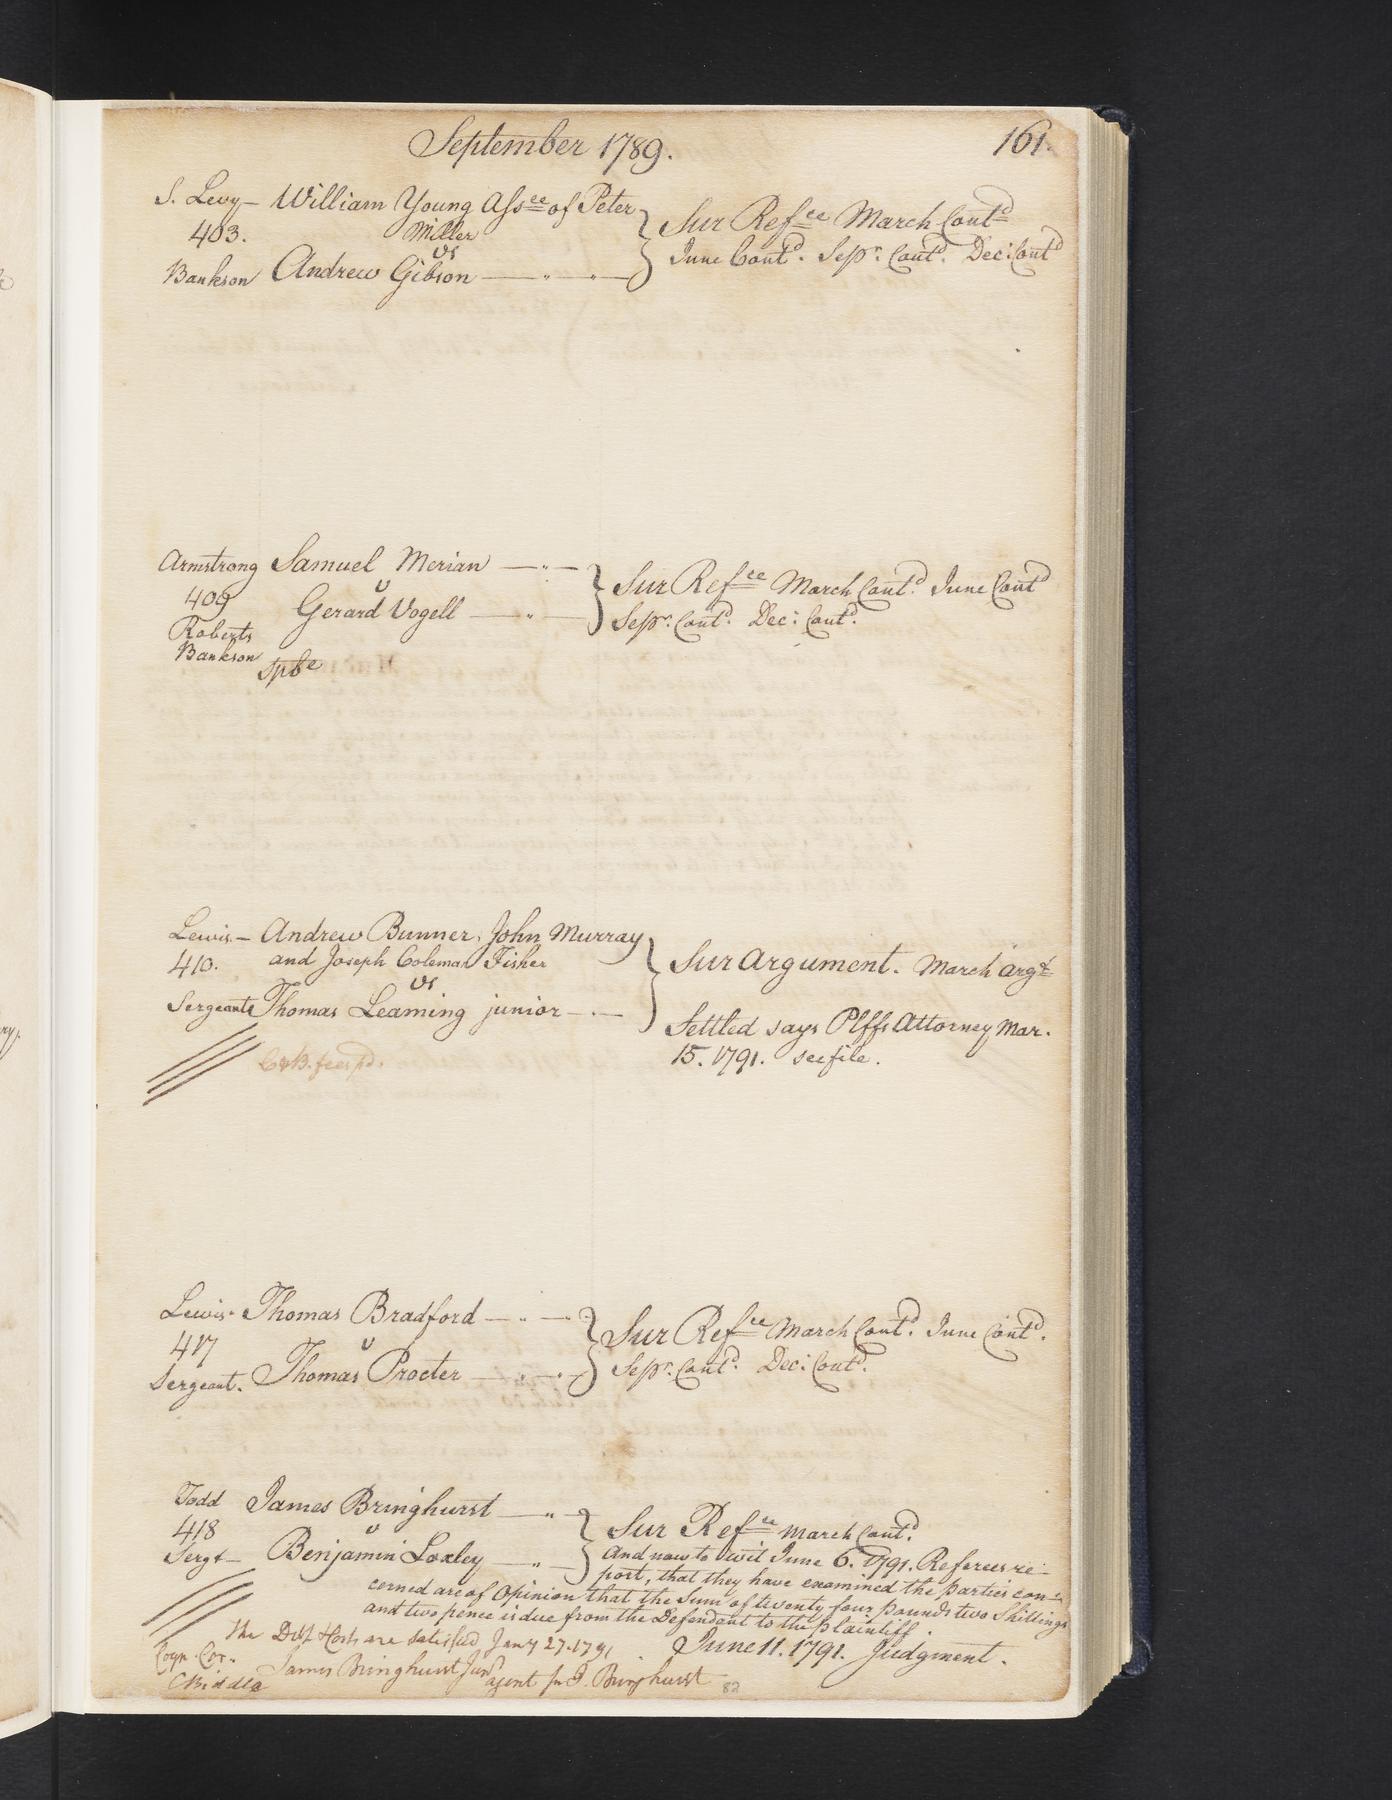 September 1789.
161.
S. Levy – William Young Assee of Peter
403. Miller
vs
Bankson Andrew Gibson
Sur Refce March Contd
June Contd. Sepr. Contd. Dec: Contd
Armstrong Samuel Merian
409 v
Gerard Vogell
Roberts
Bankson
Sur Refce March Contd. June Contd
Sepr. Contd. Dec: Contd.
Lewis – Andrew Bunner, John Murray
410. and Joseph Coleman Fisher
vs
Sergeant Thomas Leaming junior
Sur Argument. March argt
Settled says Plffs Attorney Mar.
15. 1791. see file.
C & B. fees pd.
Lewis Thomas Bradford
417 v
Sergeant. Thomas Procter
Sur Refce March Contd. June Contd.
Sepr. Contd. Dec: Contd.
Todd James Bringhurst
418 v
Sergt – Benjamin Loxley
Sur Refce March Contd.
And now to wit June 6. 1791. Referees re-
port, that they have examined the parties con-
cerned are of Opinion that the Sum of twenty four pounds two Shillings
and two pence is due from the Defendant to the plaintiff.
June 11. 1791. Judgment.
The Debt & Costs are satisfied Jany 27. 1791
James Bringhurst Junr
agent for J. Bringhurst
82